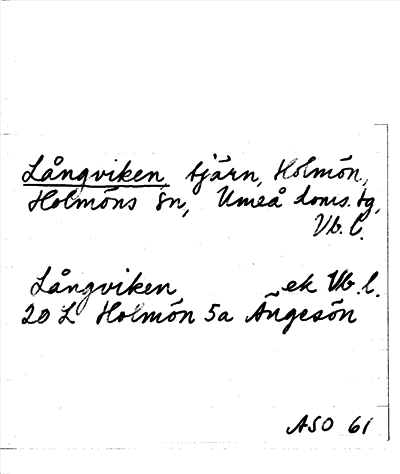 Långviken, tjärn, Holmön,
Holmöns sn, Umeå doms. tg,
Vb. l.
Långviken ek Vb. l.
20 L Holmön 5a Ängesön
ASO 61